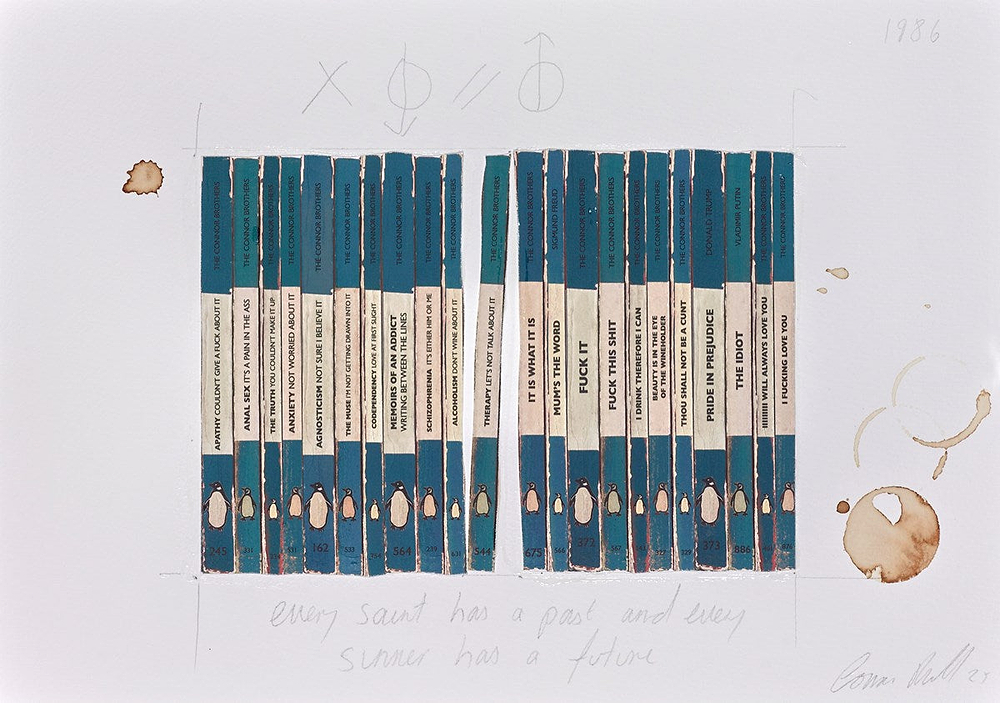 1986
X
THE CONNOR BROTHERS
APATHY COULDN'T GIVE A FUCK ABOUT IT
245
THE CONNOR BROTHERS
ANAL SEX IT'S A PAIN IN THE ASS
331
THE CONNOR BROTHERS
THE TRUTH YOU COULDN'T MAKE IT UP
THE CONNOR BROTHERS
ANXIETY NOT WORRIED ABOUT IT
THE CONNOR BROTHERS
AGNOSTICISM NOT SURE I BELIEVE IT
162
THE CONNOR BROTHERS
THE MUSE I'M NOT GETTING DRAWN INTO IT
533
THE CONNOR BROTHERS
CODEPENDENCY LOVE AT FIRST SLIGHT
THE CONNOR BROTHERS
MEMOIRS OF AN ADDICT
WRITING BETWEEN THE LINES
564
THE CONNOR BROTHERS
SCHIZOPHRENIA IT'S EITHER HIM OR ME
THE CONNOR BROTHERS
ALCOHOLISM DON'T WINE ABOUT IT
THE CONNOR BROTHERS
THERAPY LET'S NOT TALK ABOUT IT
544
THE CONNOR BROTHERS
IT IS WHAT IT IS
675
SIGMUND FREUD
MUM'S THE WORD
THE CONNOR BROTHERS
FUCK IT
372
THE CONNOR BROTHERS
FUCK THIS SHIT
THE CONNOR BROTHERS
I DRINK THEREFORE I CAN
THE CONNOR BROTHERS
BEAUTY IS IN THE EYE
OF THE WINEHOLDER
THE CONNOR BROTHERS
THOU SHALL NOT BE A CUNT
DONALD TRUMP
PRIDE IN PREJUDICE
373
VLADIMIR PUTIN
THE IDIOT
886
THE CONNOR BROTHERS
IIIIIIIII WILL ALWAYS LOVE YOU
THE CONNOR BROTHERS
I FUCKING LOVE YOU
every saint has a past and every
sinner has a future